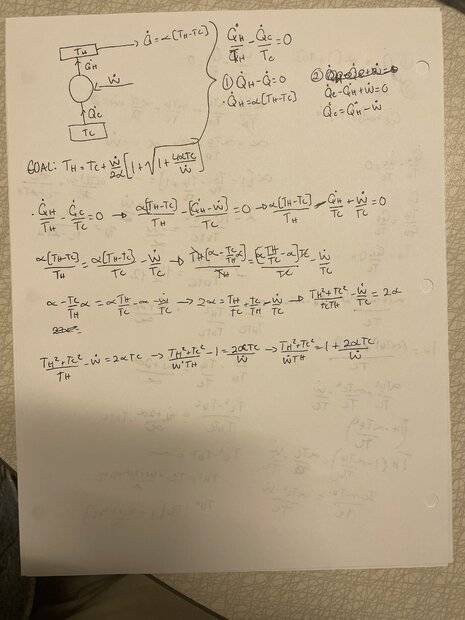 TH → Q̇ = α[TH-TC]
↑ Q̇H
← Ẇ
↑ Q̇C
TC
Q̇H/TH - Q̇C/TC = 0
① Q̇H - Q̇ = 0
· Q̇H = α[TH-TC]
②
Q̇C - Q̇H + Ẇ = 0
Q̇C = Q̇H - Ẇ
GOAL: TH = TC + Ẇ/2α [1 + √(1 + 4αTC/Ẇ)]
· Q̇H/TH - Q̇C/TC = 0 → α[TH-TC]/TH - [Q̇H-Ẇ]/TC = 0 → α[TH-TC]/TH - Q̇H/TC + Ẇ/TC = 0
α[TH-TC]/TH = α[TH-TC]/TC - Ẇ/TC → TH[α - TC/TH α]/TH = [α TH/TC - α]TC/TC - Ẇ/TC
α - TC/TH α = α TH/TC - α - Ẇ/TC → 2α = TH/TC + TC/TH - Ẇ/TC → TH²+TC²/TCTH - Ẇ/TC = 2α
TH²+TC²/TH - Ẇ = 2αTC → TH²+TC²/ẆTH - 1 = 2αTC/Ẇ → TH²+TC²/ẆTH = 1 + 2αTC/Ẇ